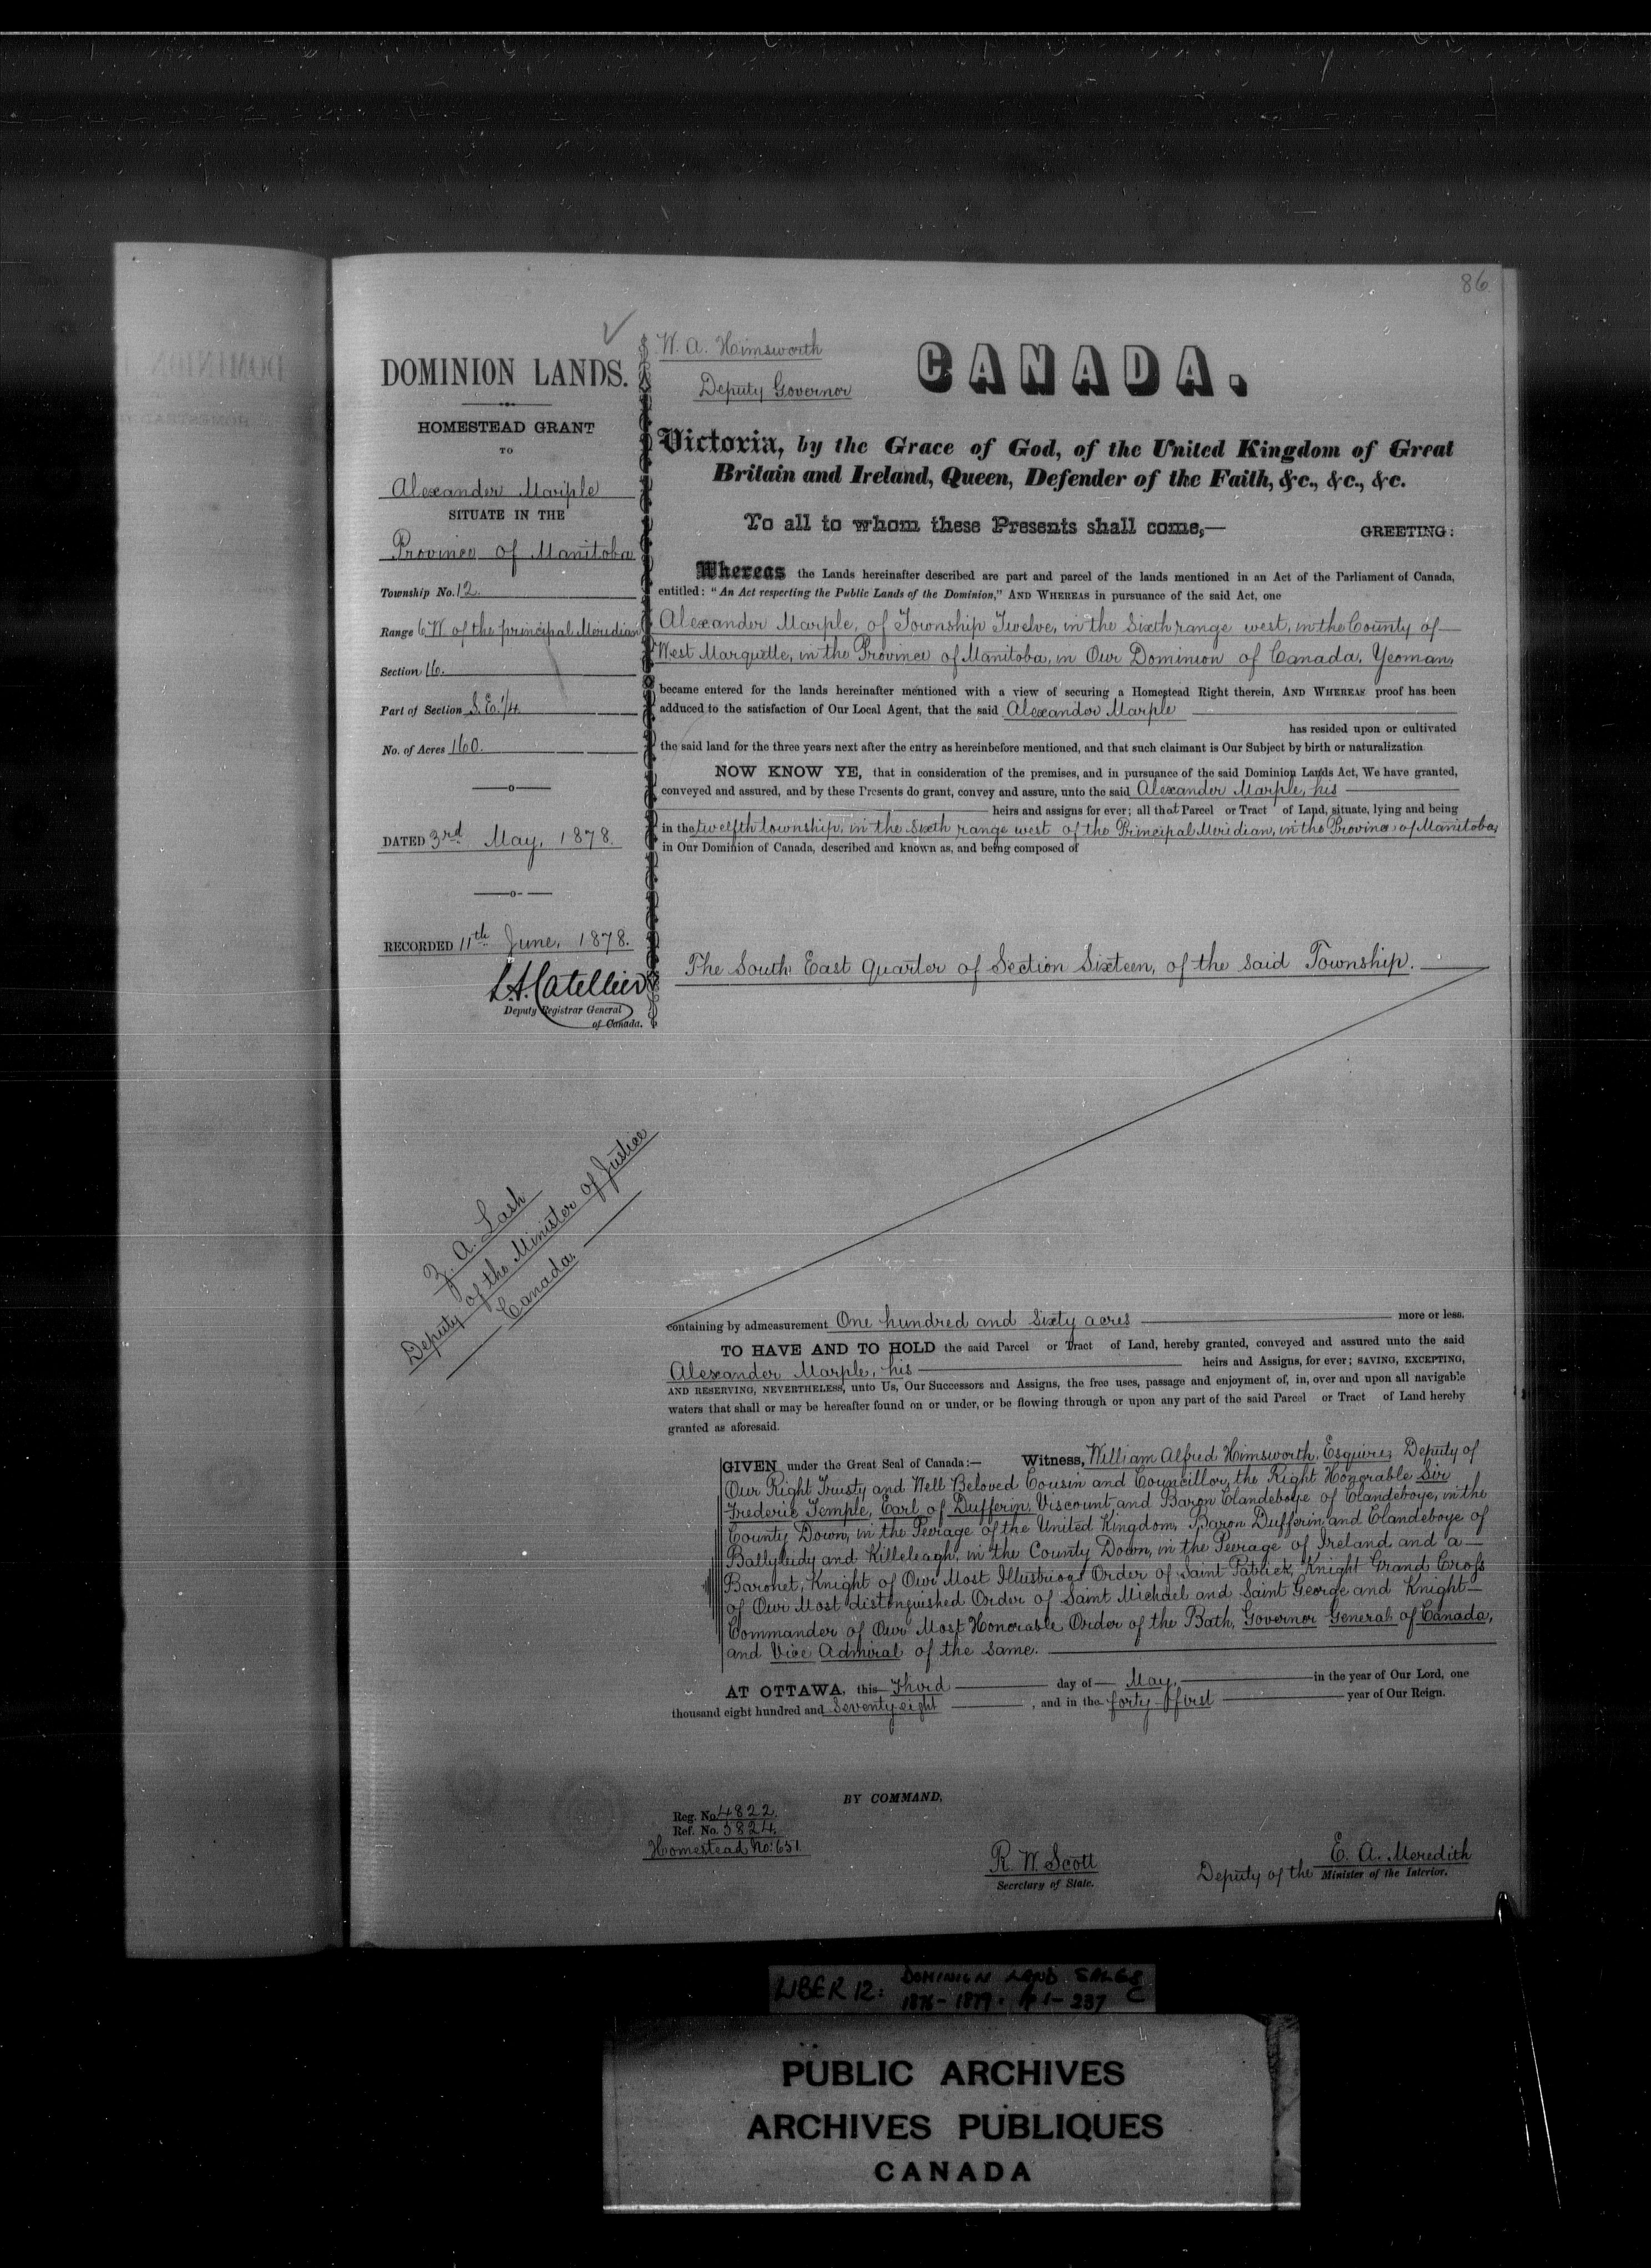 86
DOMINION LANDS.
HOMESTEAD GRANT
TO
Alexander Marple
SITUATE IN THE
Province of Manitoba
Township No. 12.
Range 6 W of the principal Meridian
Section 16.
Part of Section S.E. 1/4.
No. of Acres 160.
DATED 3rd May, 1878.
RECORDED 11th June, 1878.
L.A. Catellier
Deputy Registrar General
of Canada.
Z. A. Lash
Deputy of the Minister of Justice
Canada.
W. A. Himsworth
Deputy Governor
CANADA.
Victoria, by the Grace of God, of the United Kingdom of Great
Britain and Ireland, Queen, Defender of the Faith, &c., &c., &c.
To all to whom these Presents shall come,— GREETING:
Whereas the Lands hereinafter described are part and parcel of the lands mentioned in an Act of the Parliament of Canada,
entitled: "An Act respecting the Public Lands of the Dominion," AND WHEREAS in pursuance of the said Act, one
Alexander Marple, of Township Twelve, in the Sixth range west, in the County of
West Marquette, in the Province of Manitoba, in Our Dominion of Canada, Yeoman,
became entered for the lands hereinafter mentioned with a view of securing a Homestead Right therein, AND WHEREAS proof has been
adduced to the satisfaction of Our Local Agent, that the said Alexander Marple
has resided upon or cultivated
the said land for the three years next after the entry as hereinbefore mentioned, and that such claimant is Our Subject by birth or naturalization.
NOW KNOW YE, that in consideration of the premises, and in pursuance of the said Dominion Lands Act, We have granted,
conveyed and assured, and by these Presents do grant, convey and assure, unto the said Alexander Marple, his
heirs and assigns for ever; all that Parcel or Tract of Land, situate, lying and being
in the twelfth township, in the Sixth range west of the Principal Meridian, in the Province of Manitoba,
in Our Dominion of Canada, described and known as, and being composed of
The South East quarter of Section Sixteen, of the said Township.
containing by admeasurement One hundred and Sixty acres more or less.
TO HAVE AND TO HOLD the said Parcel or Tract of Land, hereby granted, conveyed and assured unto the said
Alexander Marple, his heirs and Assigns, for ever; SAVING, EXCEPTING,
AND RESERVING, NEVERTHELESS, unto Us, Our Successors and Assigns, the free uses, passage and enjoyment of, in, over and upon all navigable
waters that shall or may be hereafter found on or under, or be flowing through or upon any part of the said Parcel or Tract of Land hereby
granted as aforesaid.
GIVEN under the Great Seal of Canada:— Witness, William Alfred Himsworth, Esquire, Deputy of
Our Right Trusty and Well Beloved Cousin and Councillor, the Right Honorable Sir
Frederic Temple, Earl of Dufferin, Viscount and Baron Clandeboye of Clandeboye, in the
County Down, in the Peerage of the United Kingdom, Baron Dufferin and Clandeboye of
Ballyleidy and Killeleagh, in the County Down, in the Peerage of Ireland and a
Baronet, Knight of Our Most Illustrious Order of Saint Patrick, Knight Grand Cross
of Our Most distinguished Order of Saint Michael and Saint George and Knight
Commander of Our Most Honorable Order of the Bath, Governor General of Canada,
and Vice Admiral of the same.
AT OTTAWA, this Third day of May, in the year of Our Lord, one
thousand eight hundred and Seventy eight, and in the forty-first year of Our Reign.
BY COMMAND,
Reg. No. 4822.
Ref. No. 5824.
Homestead No: 651.
R. W. Scott
Secretary of State.
E. A. Meredith
Deputy of the Minister of the Interior.
LIBER 12: DOMINION LAND SALES
1876-1879. pp 1-237 C
PUBLIC ARCHIVES
ARCHIVES PUBLIQUES
CANADA